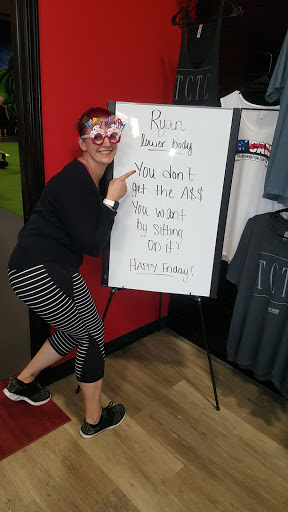 Ryan
lower body
You don't
get the A$$
You want
by Sitting
On it!
HAPPY Friday!
TCTC
TCT